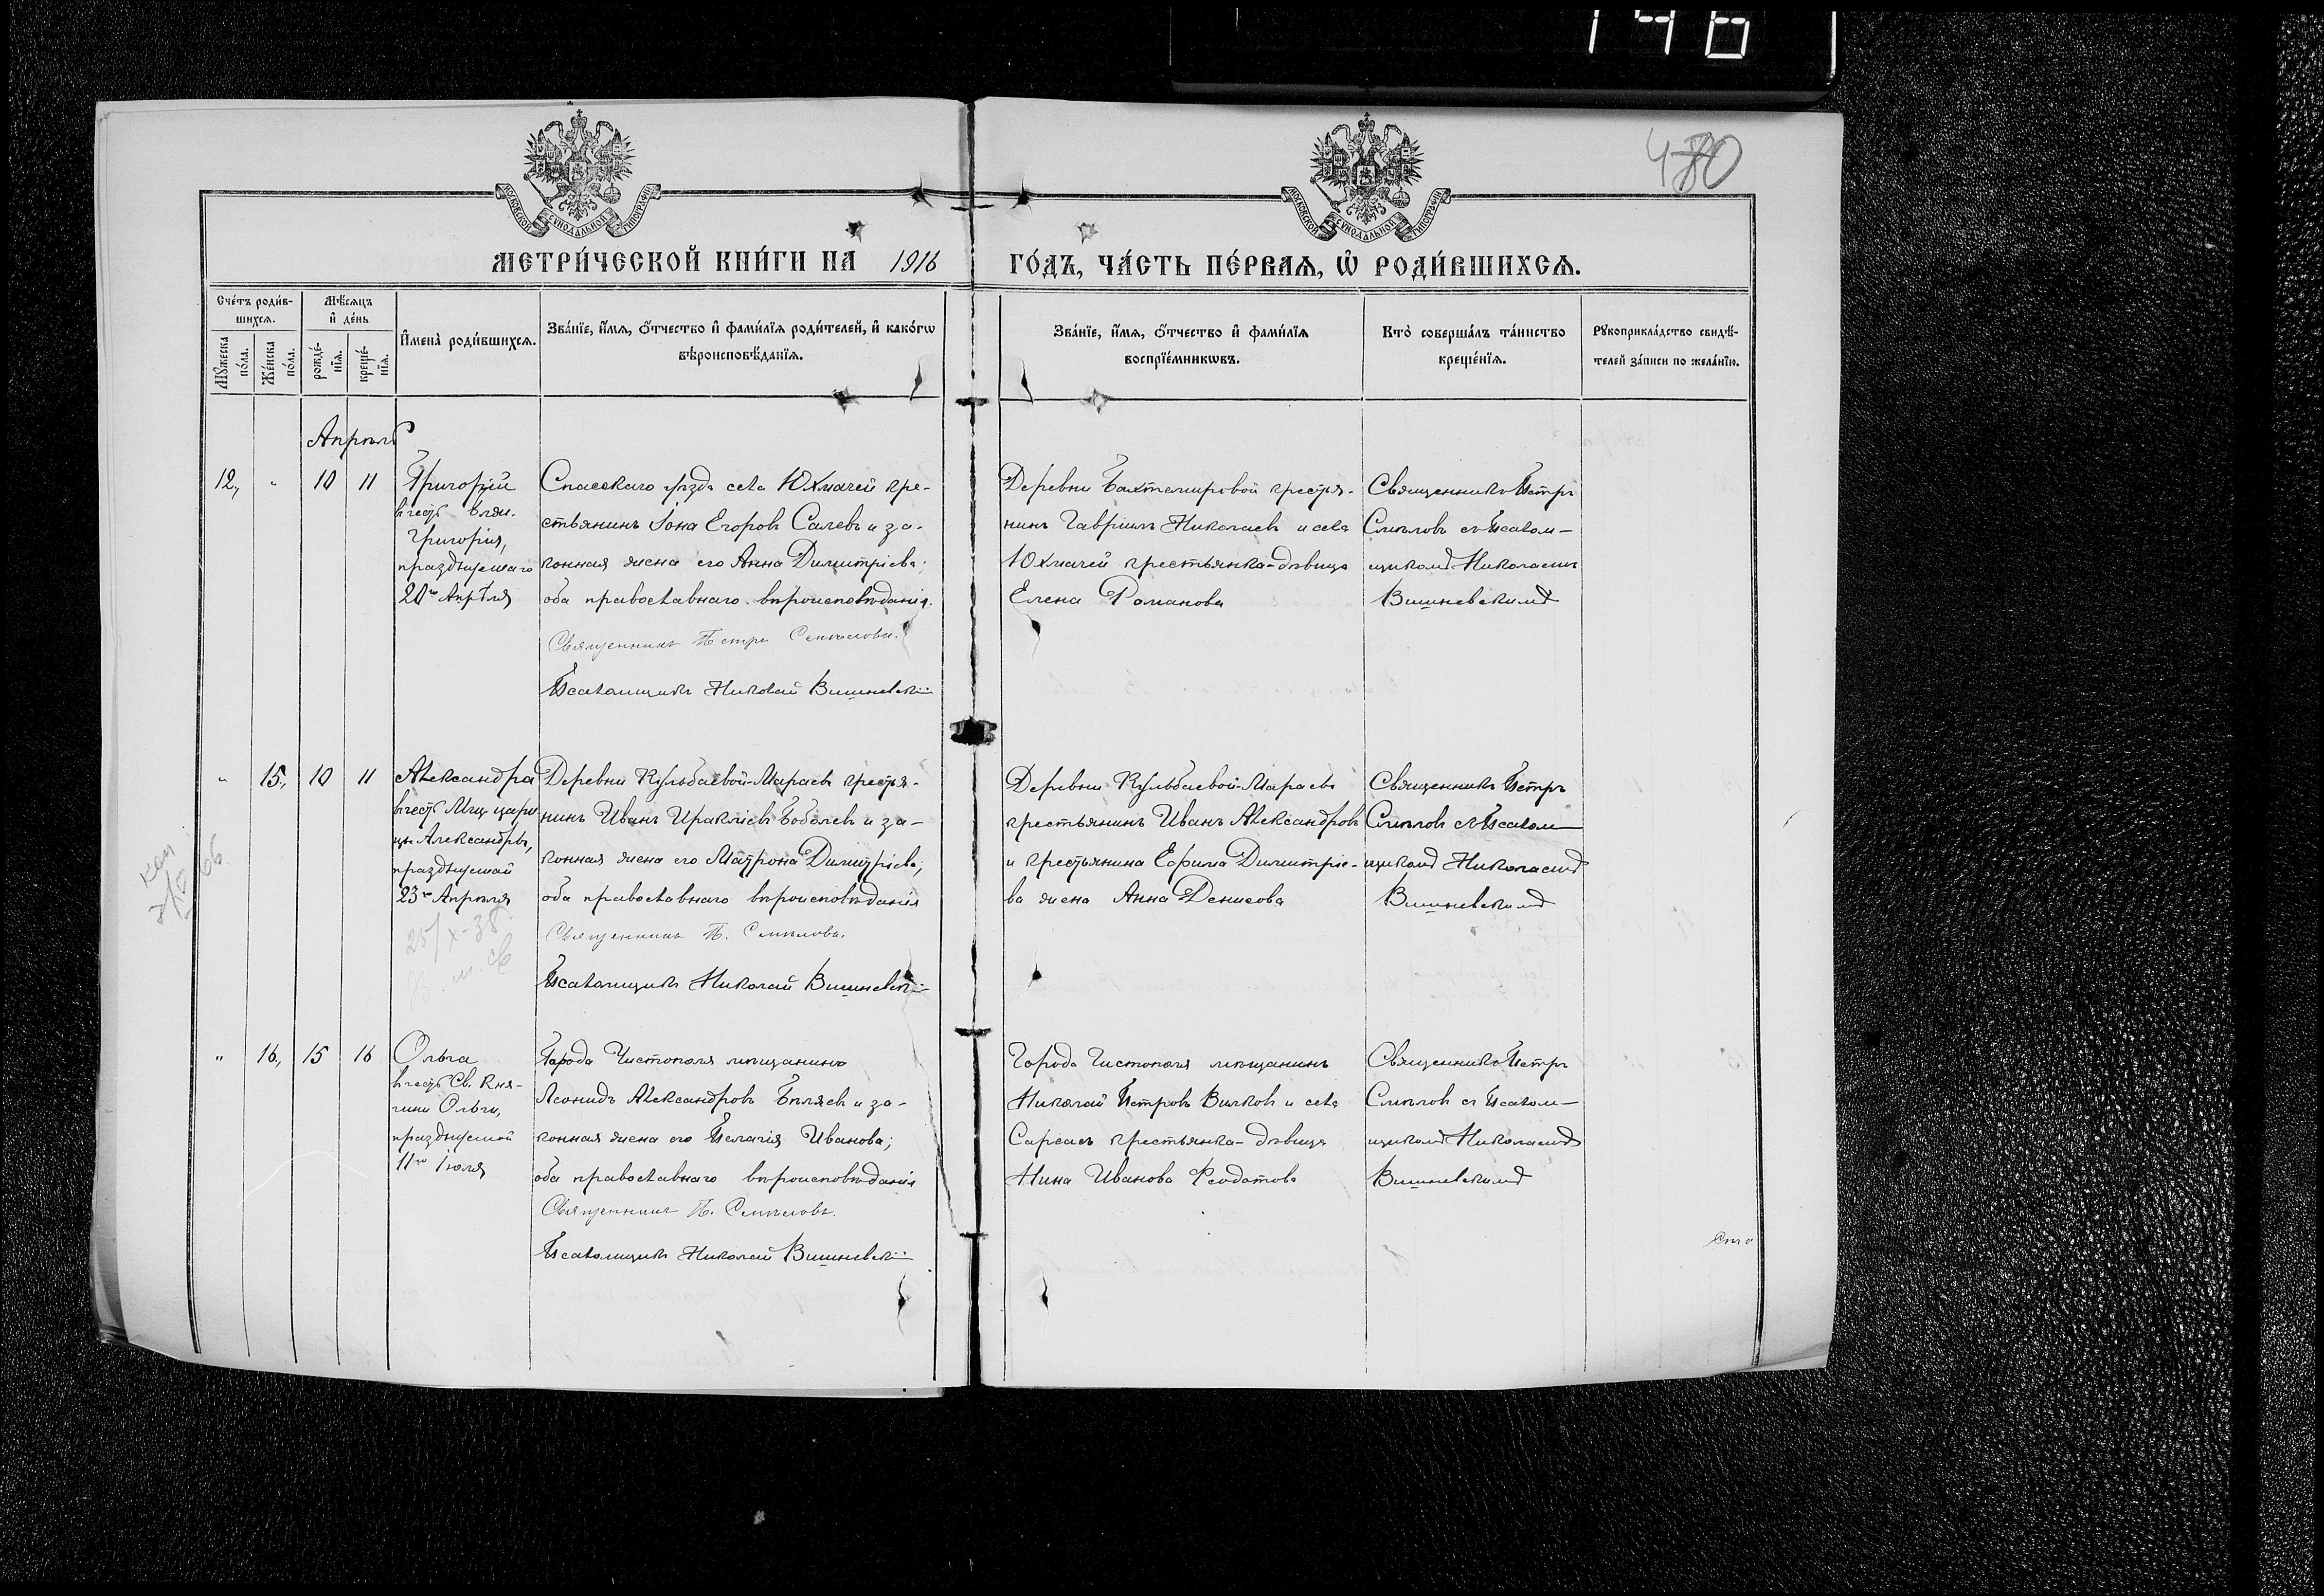 146
480
МОСКОВСКОЙ СѴНОДАЛЬНОЙ ТИПОГРАФІИ
МОСКОВСКОЙ СѴНОДАЛЬНОЙ ТИПОГРАФІИ
МЕТРИ́ЧЕСКОЙ КНИ́ГИ НА 1916 ГО́ДЪ, ЧА́СТЬ ПЕ́РВАѦ, Ѡ҆ РОДИ́ВШИХСѦ.
Сче́тъ роди́в-
шихсѧ.
Мꙋ́жеска по́ла.
Же́нска по́ла.
Мѣ́сѧцъ
и҆ де́нь
рожде́-
нїѧ.
креще́-
нїѧ.
И҆мена̀ роди́вшихсѧ.
Зва́нїе, и҆́мѧ, ѻ҆́тчество и҆ фами́лїѧ роди́телей, и҆ како́гѡ
вѣроисповѣ́данїѧ.
Зва́нїе, и҆́мѧ, ѻ҆́тчество и҆ фами́лїѧ
воспрїе́мникѡвъ.
Кто̀ соверша́лъ та́инство
креще́нїѧ.
Рꙋкоприкла́дство свидѣ́-
телей за́писи по жела́нїю.
Апрѣль
12, " 10 11
Григорій
въ честь блаж.
Григорія,
празднуемаго
20го Апрѣля
Спасскаго уѣзда села Юхмачей кре-
стьянинъ Іона Егоровъ Салевъ и за-
конная жена его Анна Димитріева;
оба православнаго вѣроисповѣданія.
Священникъ Петръ Смѣловъ.
Псаломщикъ Николай Вишневскій
Деревни Бахтемировой крестья-
нинъ Гавріилъ Николаевъ и села
Юхмачей крестьянка-дѣвица
Елена Романова
Священникъ Петръ
Смѣловъ съ Псалом-
щикомъ Николаемъ
Вишневскимъ
" 15, 10 11
Александра
въ честь Мц. цари
цы Александры,
празднуемой
23го Апрѣля
25/X-38
Деревни Кульбаевой-Мараевъ крестья-
нинъ Иванъ Иракліевъ Боболевъ и за-
конная жена его Матрона Димитріева;
оба православнаго вѣроисповѣданія
Священникъ П. Смѣловъ.
Псаломщикъ Николай Вишневскій
Деревни Кульбаевой-Мараевъ
крестьянинъ Иванъ Александровъ
и крестьянина Ефима Димитріе-
ва жена Анна Денисова
Священникъ Петръ
Смѣловъ съ Псалом
щикомъ Николаемъ
Вишневскимъ
" 16, 15 16
Ольга
въ честь Св. Кня-
гини Ольги,
празднуемой
11го Іюля
Города Чистополя мѣщанинъ
Леонидъ Александровъ Бѣляевъ и за-
конная жена его Пелагія Иванова;
оба православнаго вѣроисповѣданія
Священникъ П. Смѣловъ.
Псаломщикъ Николай Вишневскій
Города Чистополя мѣщанинъ
Николай Петровъ Вилковъ и села
Сарсасъ крестьянка-дѣвица
Нина Иванова Феодотова
Священникъ Петръ
Смѣловъ съ Псалом-
щикомъ Николаемъ
Вишневскимъ